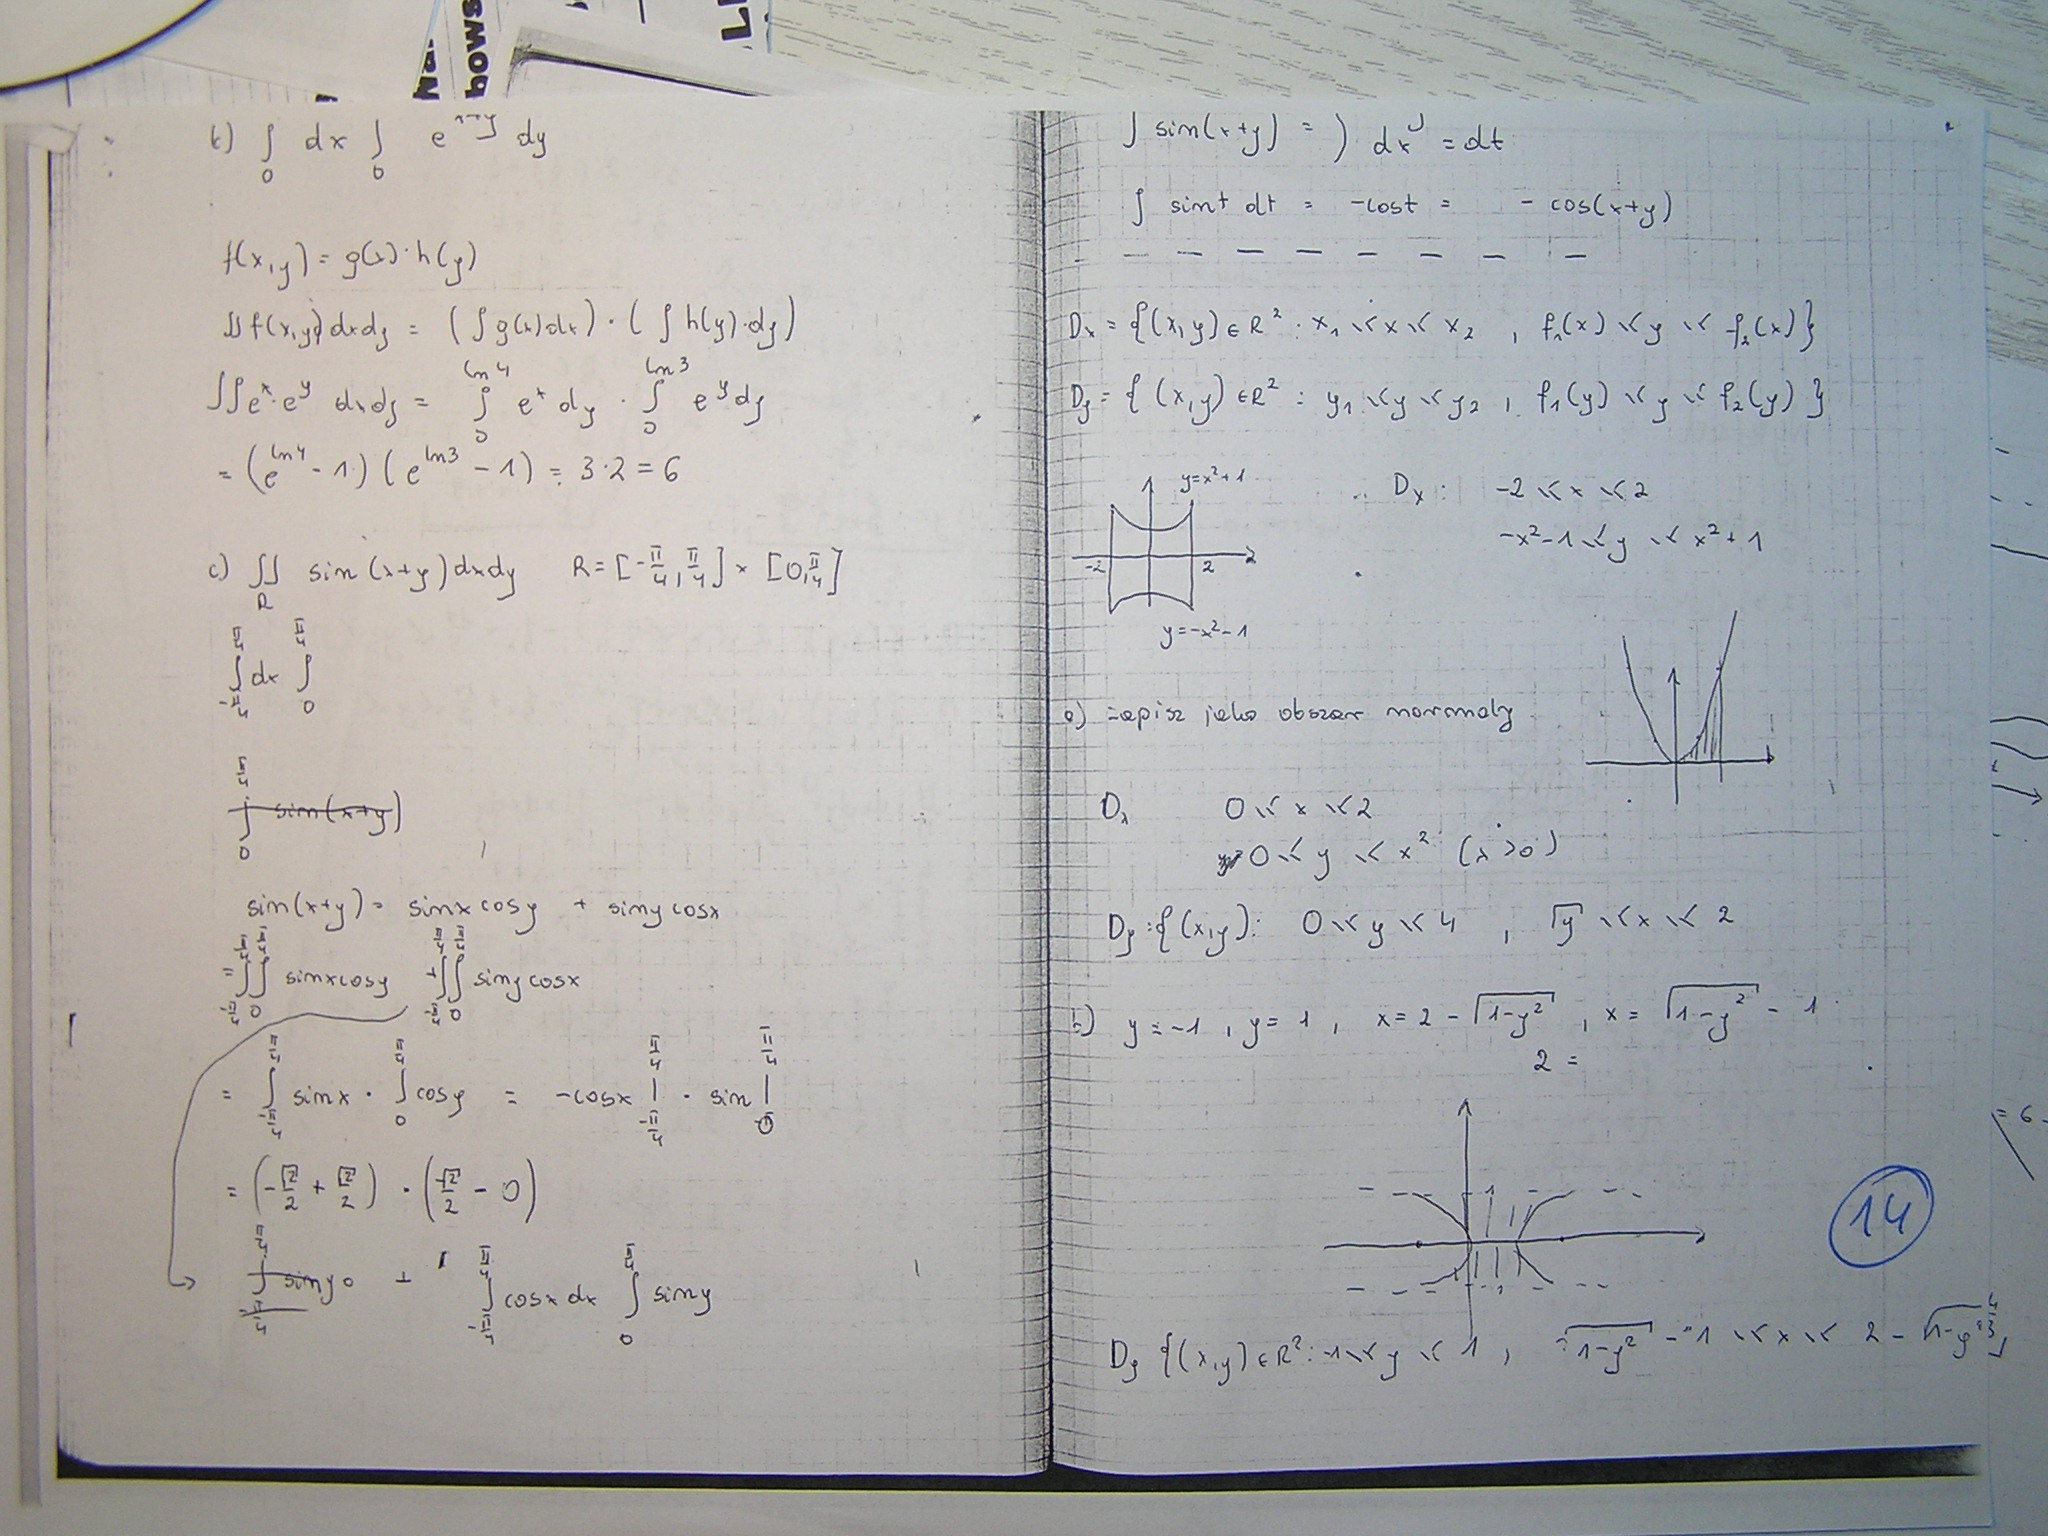 b) ∫₀ dx ∫₀ e^{x+y} dy
f(x,y) = g(x)·h(y)
∬ f(x,y) dxdy = (∫ g(x)dx)·(∫ h(y)·dy)
∬ e^x·e^y dxdy = ∫₀^{ln4} e^x dy · ∫₀^{ln3} e^y dy
= (e^{ln4} - 1)(e^{ln3} - 1) = 3·2 = 6
c) ∬_R sin(x+y)dxdy R = [-π/4, π/4] × [0, π/4]
∫_{-π/4}^{π/4} dx ∫₀^{π/4}
∫₀^{π/4} sin(x+y)
sin(x+y) = sinx cosy + siny cosx
= ∫_{-π/4}^{π/4} ∫₀^{π/4} sinxcosy + ∫_{-π/4}^{π/4} ∫₀^{π/4} siny cosx
= ∫_{-π/4}^{π/4} sinx · ∫₀^{π/4} cosy = -cosx |_{-π/4}^{π/4} · sin |₀^{π/4}
= (-√2/2 + √2/2) · (√2/2 - 0)
∫_{-π/4}^{π/4} siny 0 + ∫_{-π/4}^{π/4} cosx dx ∫₀^{π/4} siny
∫ sin(x+y) = ) dx = dt
∫ sint dt = -cost = - cos(x+y)
D_x = {(x,y) ∈ R² : x₁ ≤ x ≤ x₂ , f₁(x) ≤ y ≤ f₂(x)}
D_y = {(x,y) ∈ R² : y₁ ≤ y ≤ y₂ , f₁(y) ≤ y ≤ f₂(y)}
y=x²+1
D_x : -2 ≤ x ≤ 2
-x²-1 ≤ y ≤ x²+1
-2 2
y=-x²-1
a) zapisz jako obszar normalny
D_x 0 ≤ x ≤ 2
0 ≤ y ≤ x² (x>0)
D_y : {(x,y): 0 ≤ y ≤ 4 , √y ≤ x ≤ 2
b) y = -1 , y = 1 , x = 2 - √(1-y²) , x = √(1-y²) - 1
2 =
1
14
D_y {(x,y) ∈ R²: -1 ≤ y ≤ 1 , √(1-y²) - 1 ≤ x ≤ 2 - √(1-y²)}
= 6